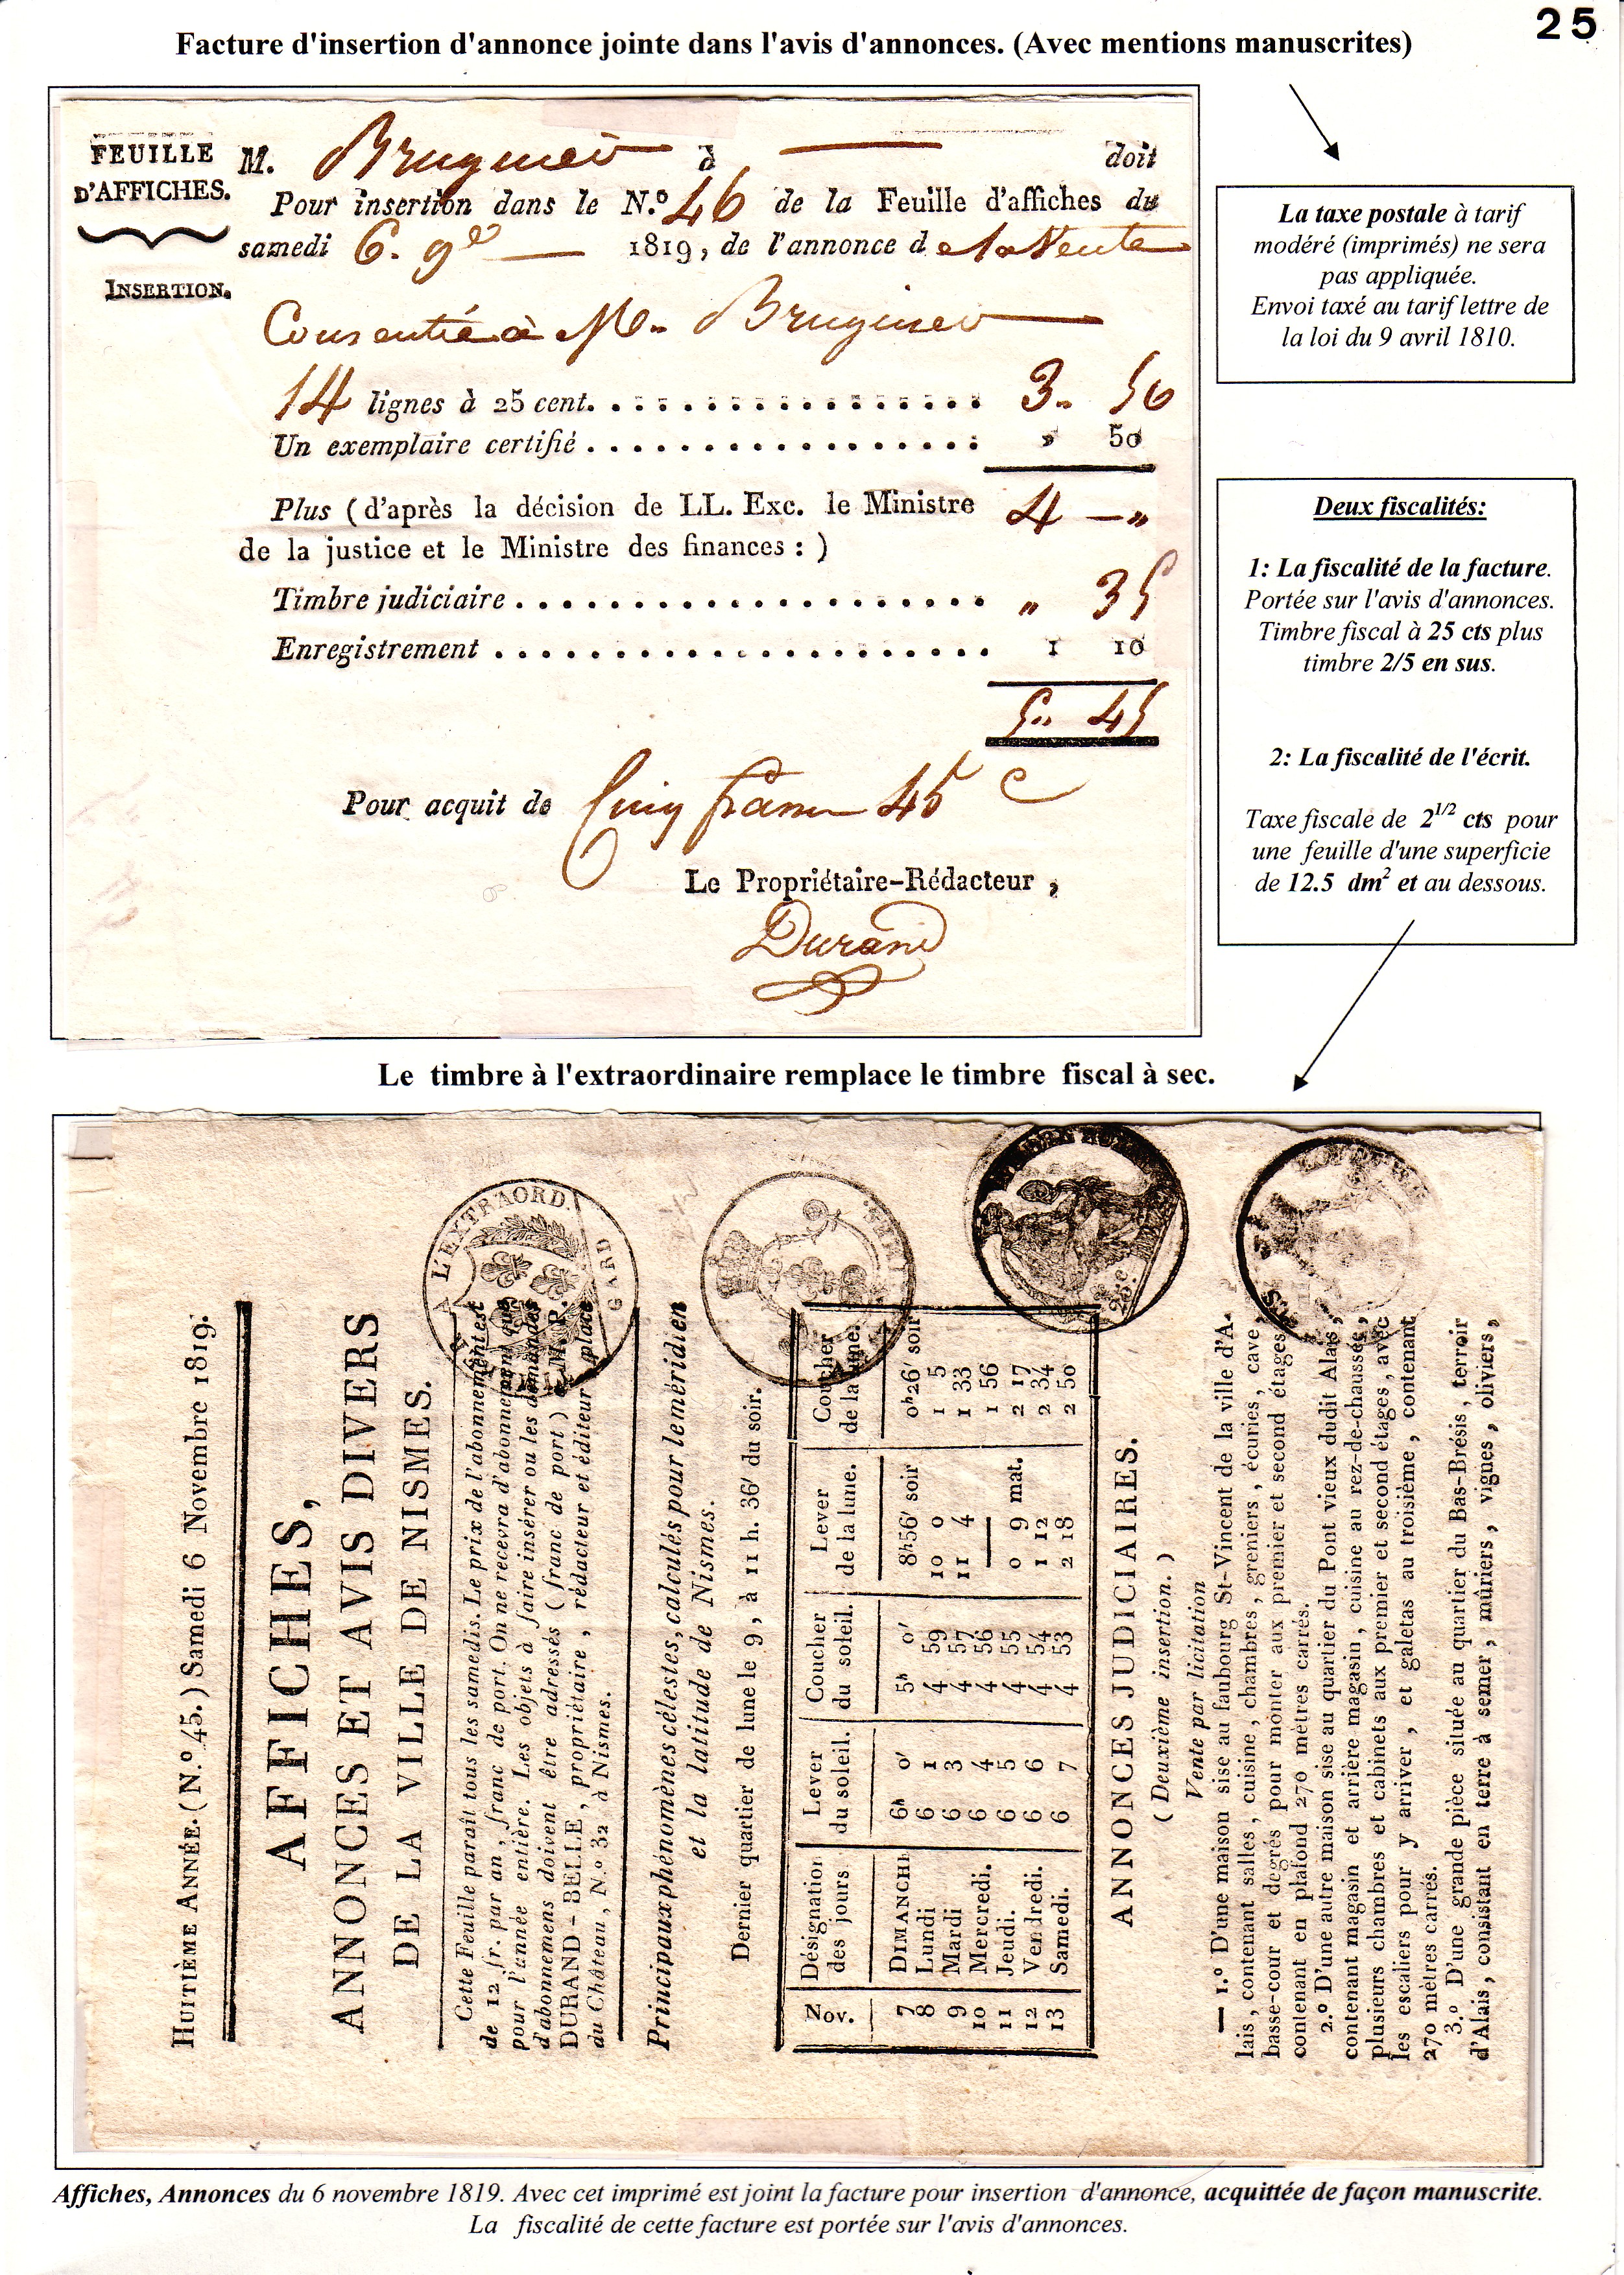 25
Facture d'insertion d'annonce jointe dans l'avis d'annonces. (Avec mentions manuscrites)
FEUILLE
D'AFFICHES.
INSERTION.
M. Bruguier à doit
Pour insertion dans le N.º 46 de la Feuille d'affiches du
samedi 6. 9e 1819, de l'annonce de la Vente
Consentie à M. Bruguier
14 lignes à 25 cent. 3. 50
Un exemplaire certifié » 50
Plus (d'après la décision de LL. Exc. le Ministre 4 — "
de la justice et le Ministre des finances : )
Timbre judiciaire " 35
Enregistrement 1 10
5" 45
Pour acquit de Cinq francs 45 c
Le Propriétaire-Rédacteur,
Durand
La taxe postale à tarif
modéré (imprimés) ne sera
pas appliquée.
Envoi taxé au tarif lettre de
la loi du 9 avril 1810.
Deux fiscalités:
1: La fiscalité de la facture.
Portée sur l'avis d'annonces.
Timbre fiscal à 25 cts plus
timbre 2/5 en sus.
2: La fiscalité de l'écrit.
Taxe fiscale de 2 1/2 cts pour
une feuille d'une superficie
de 12.5 dm2 et au dessous.
Le timbre à l'extraordinaire remplace le timbre fiscal à sec.
HUITIÈME ANNÉE. (N.º 45.) Samedi 6 Novembre 1819.
AFFICHES,
ANNONCES ET AVIS DIVERS
DE LA VILLE DE NISMES.
Cette Feuille paraît tous les samedis. Le prix de l'abonnement est
de 12 fr. par an, franc de port. On ne recevra d'abonnement que
pour l'année entière. Les objets à faire insérer ou les demandes
d'abonnemens doivent être adressés (franc de port) à M. P.
DURAND-BELLE, propriétaire, rédacteur et éditeur, place
du Château, N.º 32 à Nismes.
Principaux phénomènes célestes, calculés pour le méridien
et la latitude de Nismes.
Dernier quartier de lune le 9, à 11 h. 36' du soir.
Nov. Désignation des jours Lever du soleil. Coucher du soleil. Lever de la lune. Coucher de la lune.
7 DIMANCHE 6h 0' 5h 0' 8h56' soir 0h26' soir
8 Lundi 6 1 4 59 10 0 1 5
9 Mardi 6 3 4 57 11 4 1 33
10 Mercredi. 6 4 4 56 — 1 56
11 Jeudi. 6 5 4 55 0 9 mat. 2 17
12 Vendredi. 6 6 4 54 1 12 2 34
13 Samedi. 6 7 4 53 2 18 2 50
ANNONCES JUDICIAIRES.
(Deuxième insertion.)
Vente par licitation
— 1.º D'une maison sise au faubourg St-Vincent de la ville d'A-
lais, contenant salles, cuisine, chambres, greniers, écuries, cave,
basse-cour et degrés pour monter aux premier et second étages,
contenant en plafond 270 mètres carrés.
2.º D'une autre maison sise au quartier du Pont vieux dudit Alais,
contenant magasin et arrière magasin, cuisine au rez-de-chaussée,
plusieurs chambres et cabinets aux premier et second étages, avec
les escaliers pour y arriver, et galetas au troisième, contenant
270 mètres carrés.
3.º D'une grande pièce située au quartier du Bas-Brésis, terroir
d'Alais, consistant en terre à semer, mûriers, vignes, oliviers,
A L'EXTRAORD.
GARD
25c.
Affiches, Annonces du 6 novembre 1819. Avec cet imprimé est joint la facture pour insertion d'annonce, acquittée de façon manuscrite.
La fiscalité de cette facture est portée sur l'avis d'annonces.